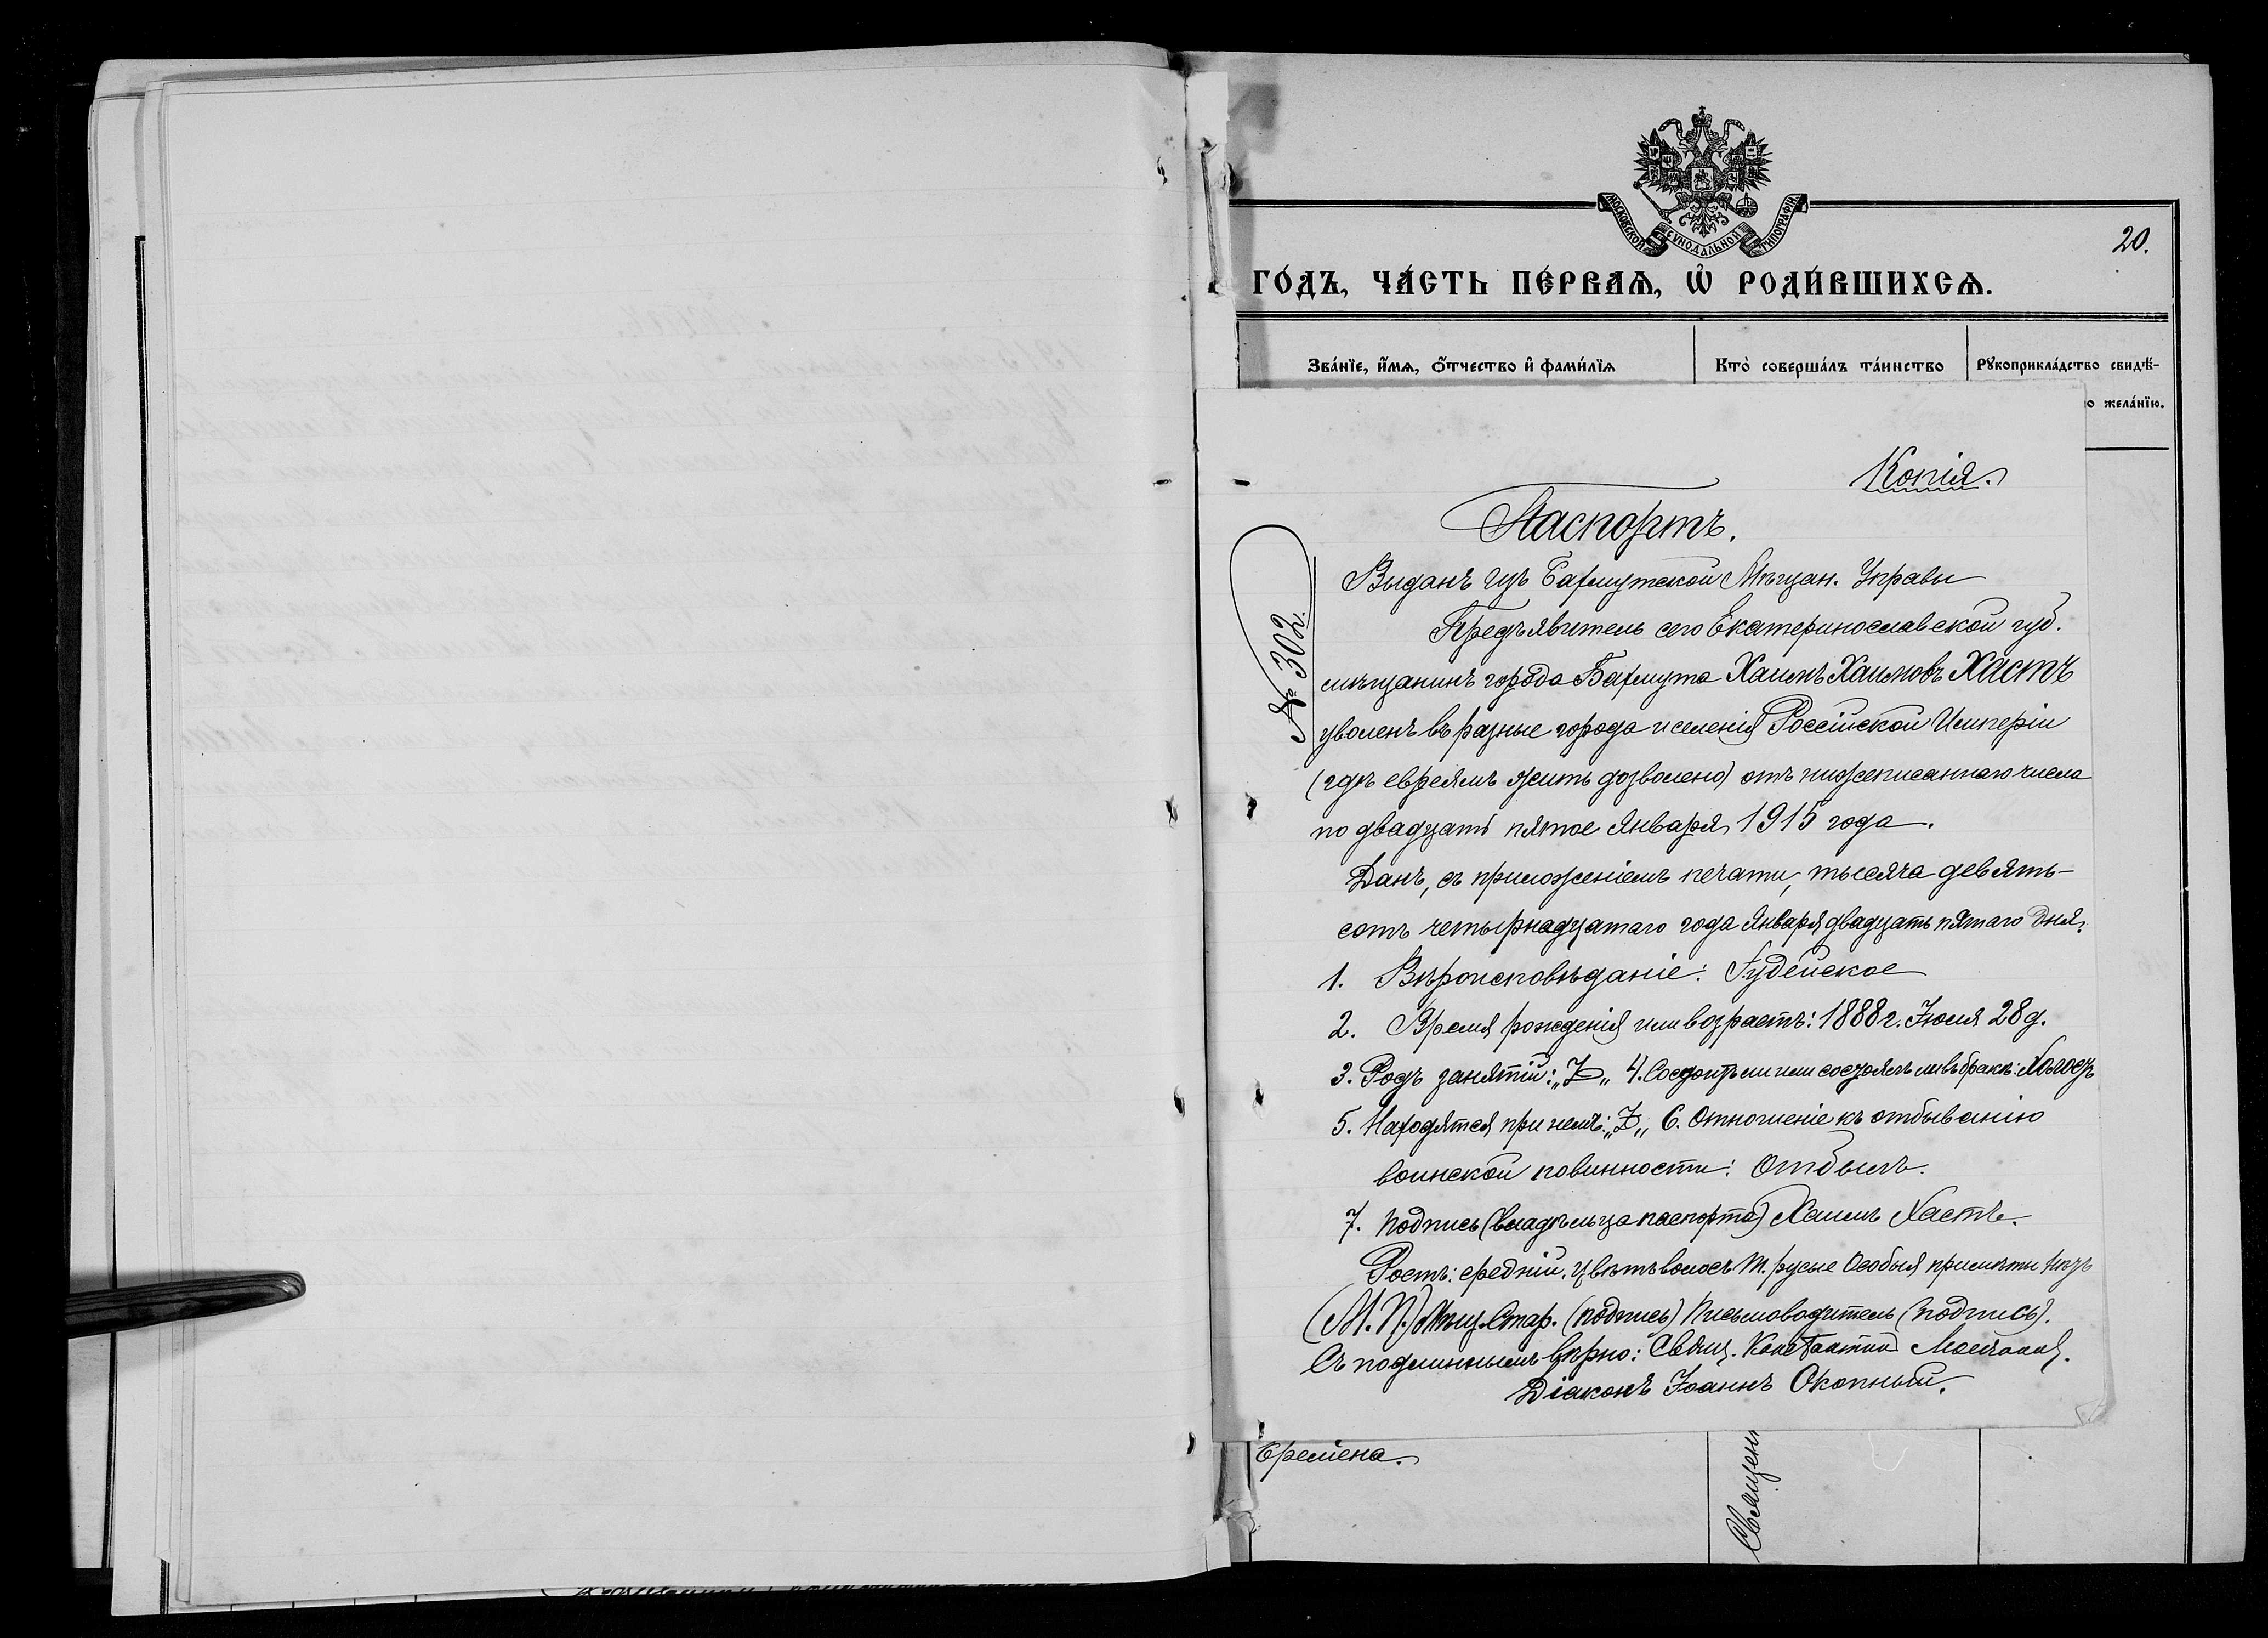 МОСКОВСКОЙ СУНОДАЛЬНОЙ ТИПОГРАФІИ
20.
ГО́ДЪ, ЧА́СТЬ ПЕ́РВАѦ, Ѽ РОДИ́ВШИХСѦ.
Зва́нїе, и҆́мѧ, ѻ҆́тчество и҆ фами́лїѧ
Кто̀ соверша́лъ та́инство
Рꙋкоприкла́дство свидѣ́-
о жела́нїю.
Копія.
Паспортъ.
№ 302.
Выданъ изъ Бахмутской Мѣщан. Управы
Предъявитель сего Екатеринославской губ.
мѣщанинъ города Бахмута Хаимъ Хаимовъ Хастъ
уволенъ въ разные города и селенія Россійской Имперіи
(гдѣ евреямъ жить дозволено) отъ нижеписаннаго числа
по двадцать пятое Января 1915 года.
Данъ, съ приложеніемъ печати, тысяча девять-
сотъ четырнадцатаго года Января двадцать пятаго дня.
1. Вѣроисповѣданіе: Іудейское
2. Время рожденія или возрастъ: 1888 г. Іюля 28 д.
3. Родъ занятій: „Z„ 4. Состоитъ ли или состоялъ ли въ бракѣ: Холостъ
5. Находятся при немъ: „Z„ 6. Отношеніе къ отбыванію
воинской повинности: Отбылъ.
7. Подпись (владѣльца паспорта) Хаимъ Хастъ.
Ростъ: средній. Цвѣтъ волосъ т. русые Особыя примѣты
(М. П.) Мѣщ. Стар. (подпись) Письмоводитель (подпись).
Съ подлиннымъ вѣрно: Свящ. Константинъ
Діаконъ Іоаннъ Окопный.
Еремена.
Священн